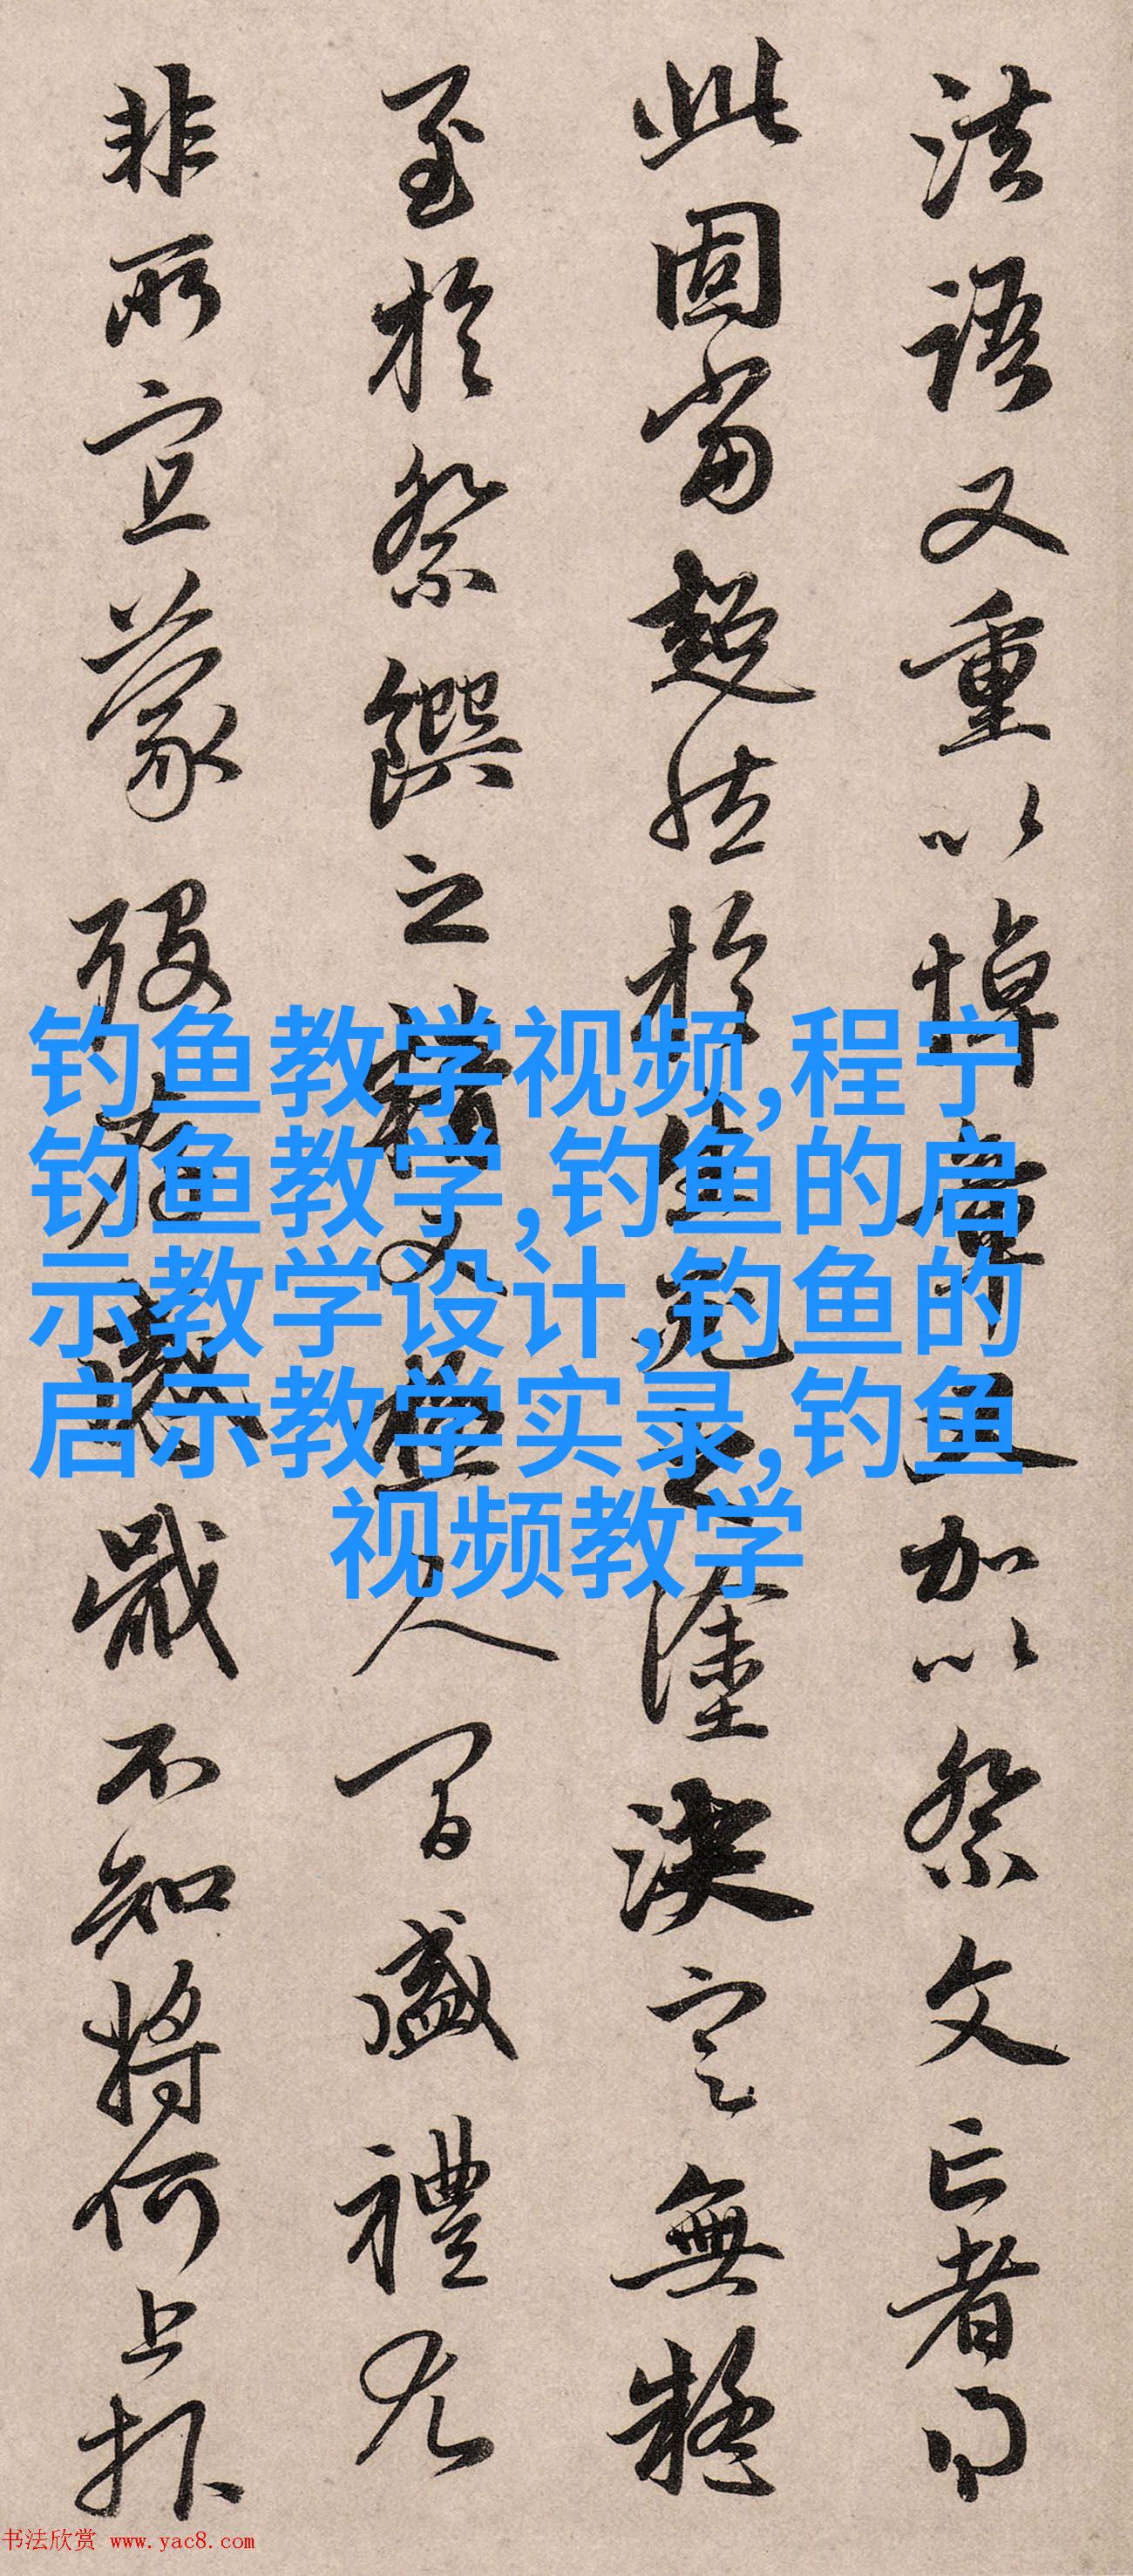 法語又重以悼章加以祭文亡者得
此固當超然於生死之塗決定無疑
至於祭饌之精又極人間盛禮尤
非所宜蒙歿存感不知將何上報
钓鱼教学视频,程宁
钓鱼教学,钓鱼的启
示教学设计,钓鱼的
启示教学实录,钓鱼
视频教学
书法欣赏 www.yac8.com